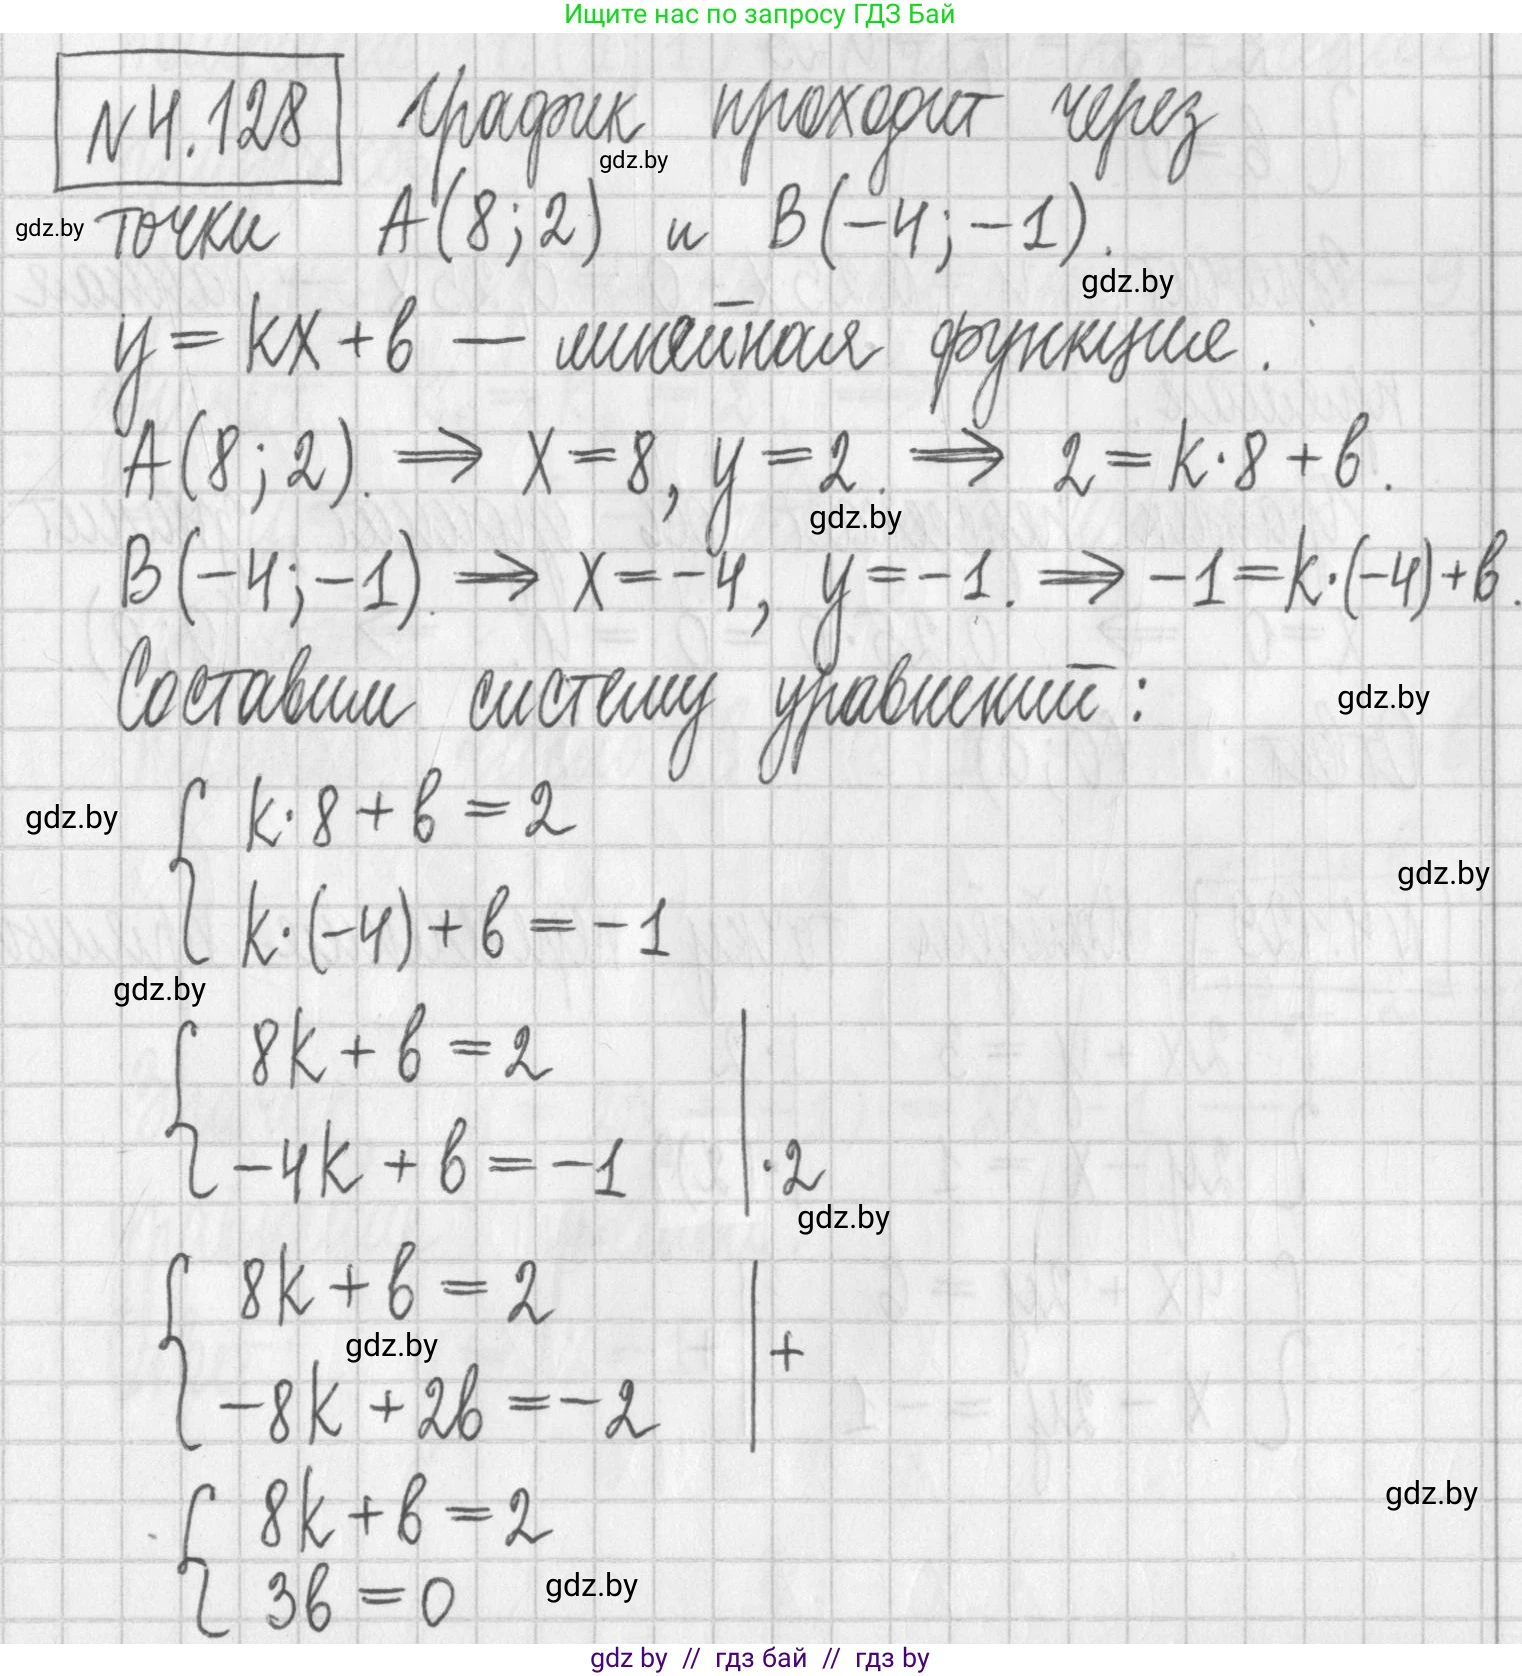 Ищите нас по запросу ГДЗ Бай
N4.128 График проходит через
gdz.by
gdz.by
точки A(8;2) и B(-4;-1).
gdz.by
y=kx+b — линейная функция.
A(8;2). ⇒ x=8, y=2. ⇒ 2=k·8+b.
gdz.by
B(-4;-1). ⇒ x=-4, y=-1. ⇒ -1=k·(-4)+b.
Составим систему уравнений:
gdz.by
{ k·8+b=2
gdz.by
gdz.by
k·(-4)+b=-1
gdz.by
{ 8k+b=2
-4k+b=-1 | ·2
gdz.by
{ 8k+b=2
gdz.by
-8k+2b=-2 | +
{ 8k+b=2
gdz.by
3b=0
gdz.by
gdz by // гдз бай // гдз by